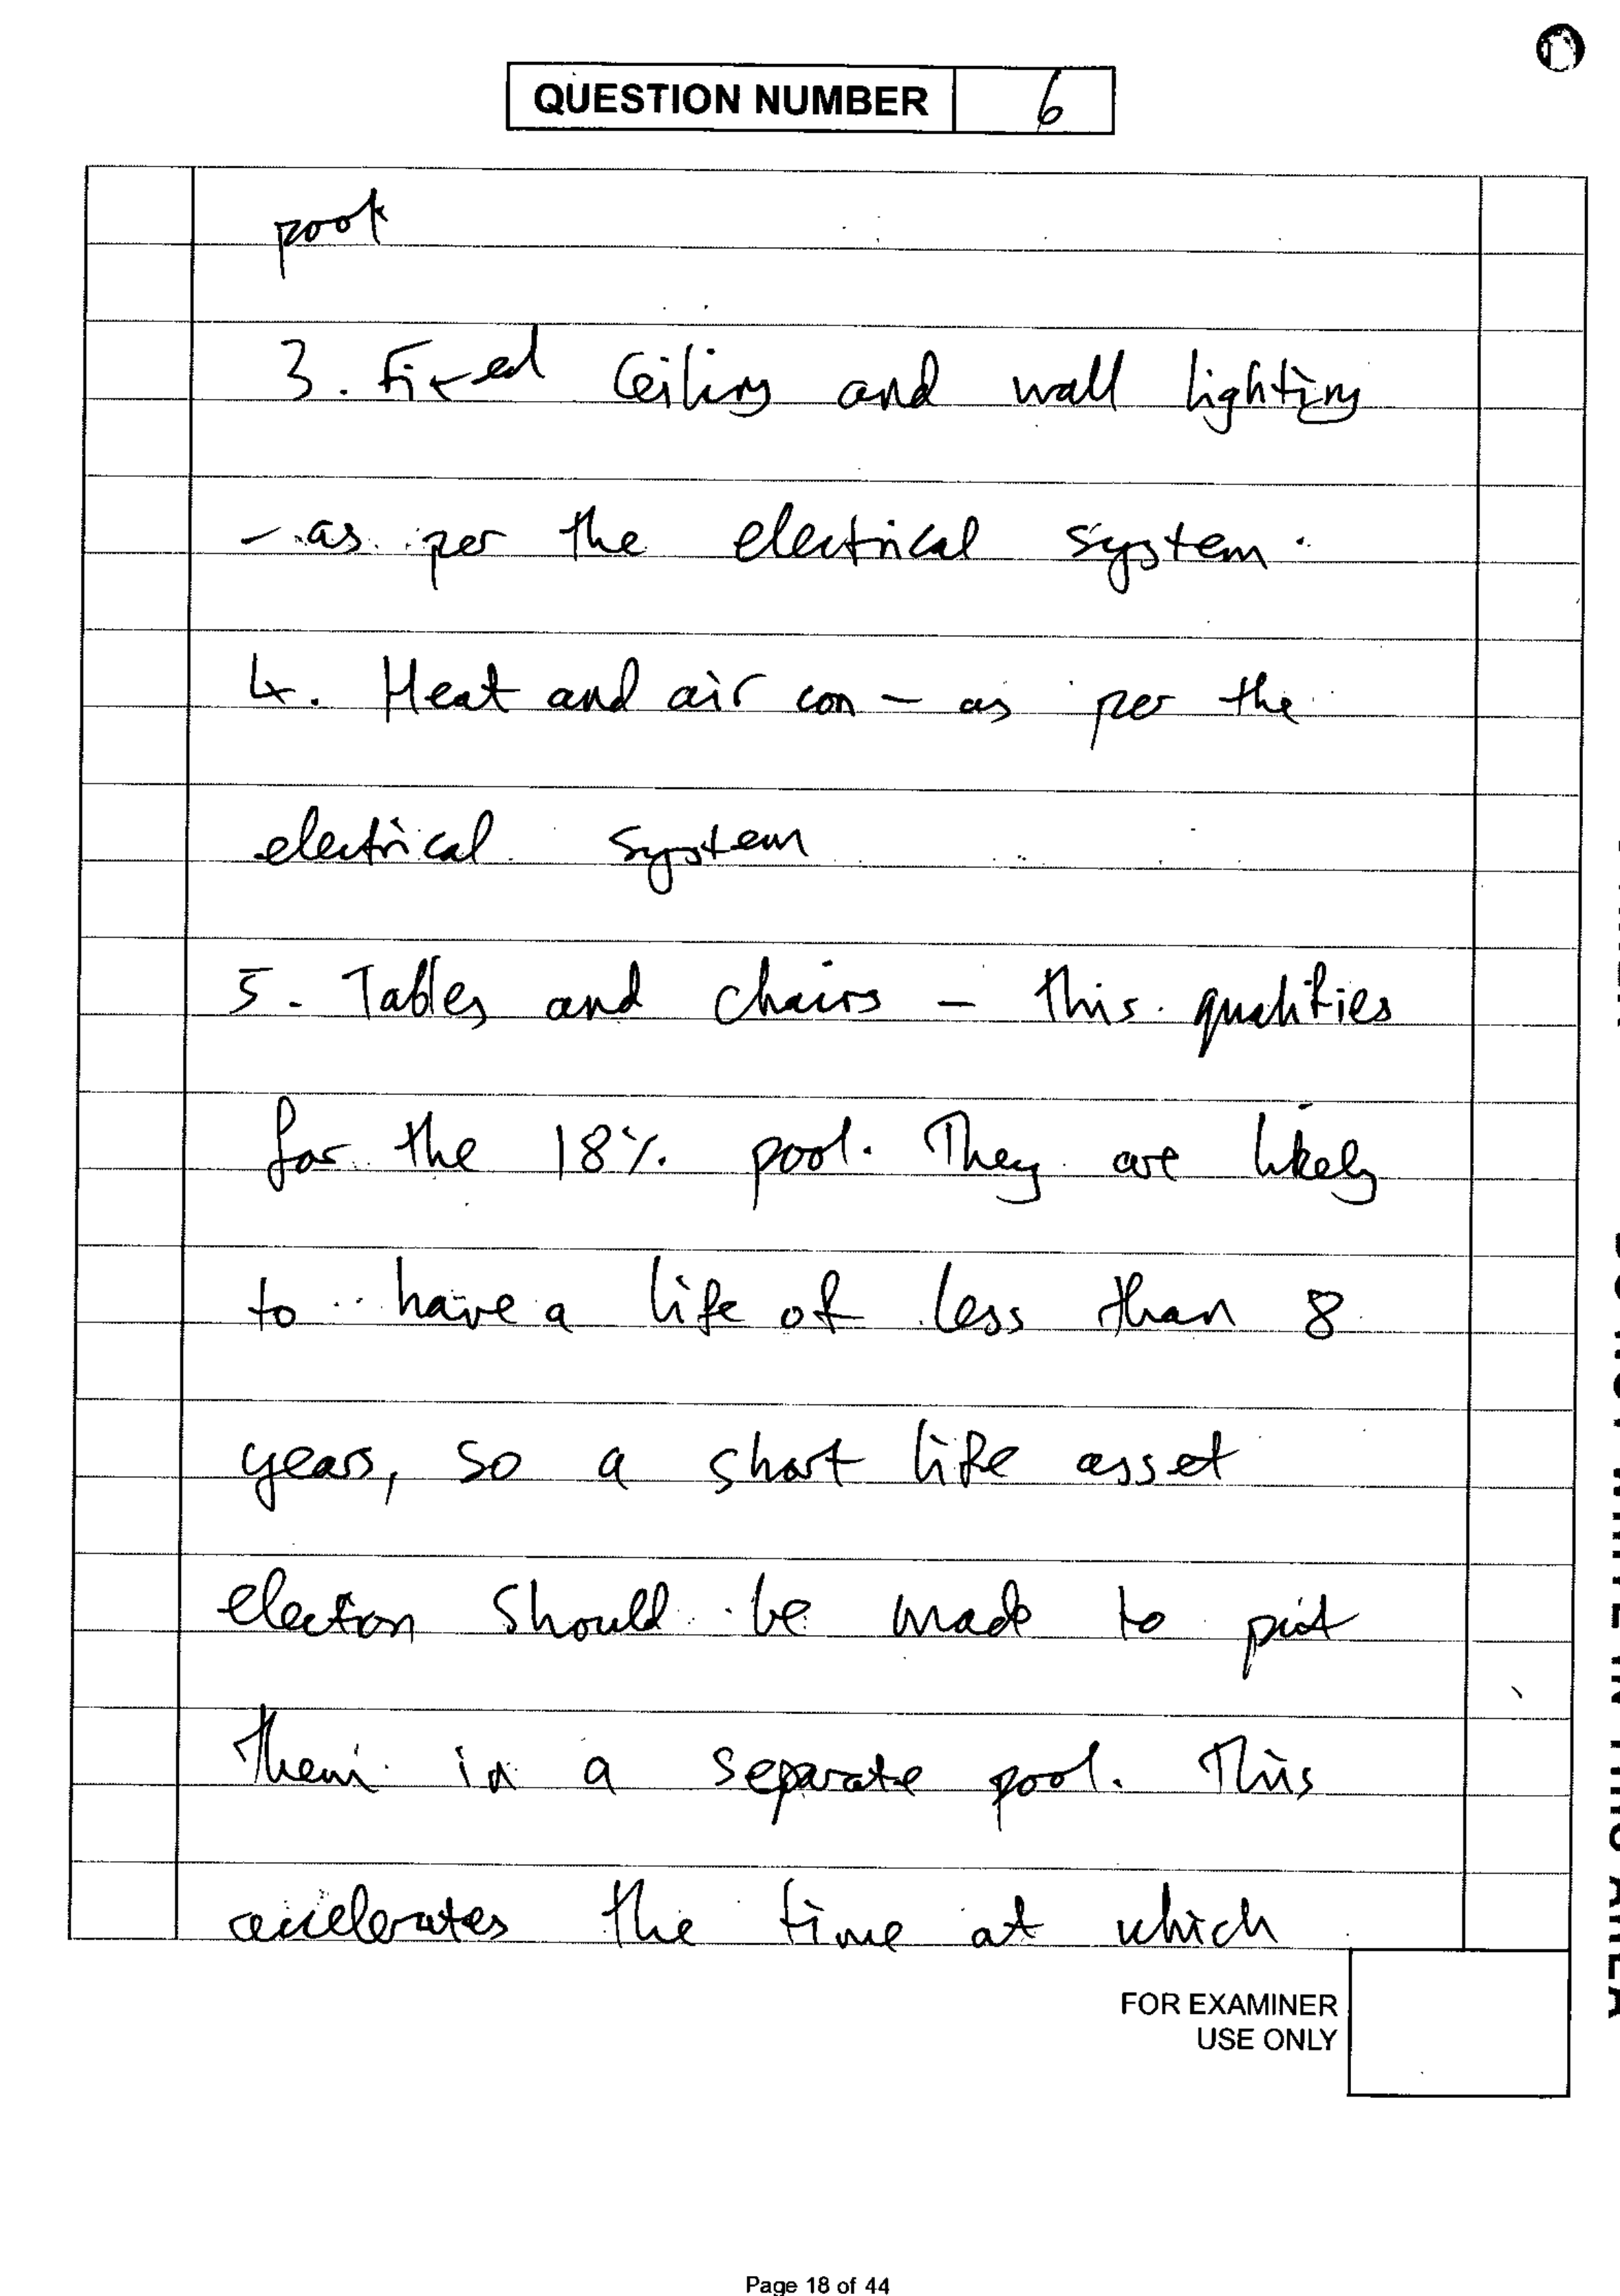 QUESTION NUMBER 6
pool
3. Fixed Ceiling and wall lighting
- as per the electrical system.
4. Heat and air con - as per the
electrical system
5. Tables and chairs - this qualifies
for the 18% pool. They are likely
to have a life of less than 8
years, so a short life asset
election should be made to put
them in a separate pool. This
accelerates the time at which
FOR EXAMINER
USE ONLY
Page 18 of 44